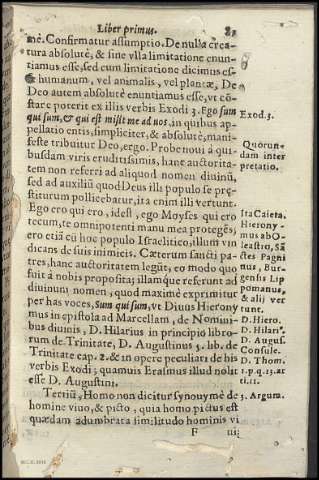 Liber primus. 83
mè. Confirmatur assumptio. De nulla crea-
tura absolutè, & sine vlla limitatione enun-
tiamus esse, sed cum limitatione dicimus es-
humanum, vel animalis, vel plantæ, De
Deo autem absolutè enuntiamus esse, vt cō-
stare poterit ex illis verbis Exodi 3. Ego sum
qui sum, & qui est misit me ad vos, in quibus ap-
pellatio entis, simpliciter, & absolutè, mani-
feste tribuitur Deo, ergo. Probe noui à qui-
busdam viris eruditissimis, hanc auctorita-
tem non referri ad aliquod nomen diuinū,
sed ad auxiliū quod Deus illi populo se præ-
stiturum pollicebatur, ita enim illi vertunt.
Ego ero qui ero, idest, ego Moyses qui ero
tecum, te omnipotenti manu mea protegēs;
ero etiā cū hoc populo Israelitico, illum vin
dicans de suis inimicis. Cæterum sancti pa-
tres, hanc auctoritatem legūt, eo modo quo
fuit à nobis proposita; illamque referunt ad
diuinum nomen, quod maximè exprimitur
per has voces, Sum qui sum, vt Diuus Hierony
mus in epistola ad Marcellam, de Nomini-
bus diuinis, D. Hilarius in principio libro-
rum de Trinitate, D. Augustinus 5. lib. de
Trinitate cap. 2. & in opere peculiari de his
verbis Exodi; quamuis Erasmus illud nolit
esse D. Augustini.
Tertiū, Homo non dicitur synonymè de
homine viuo, & picto, quia homo pictus est
quædam adumbrata similitudo hominis vi
F iij
Exod. 3.
Quorun-
dam inter
pretatio.
Ita Caieta.
Hierony-
mus ab O-
leastro, sā
ctes Pagni
nus, Bur-
gensis Lip
pomanus,
& alij ver
tunt.
D. Hiero.
D. Hilari9.
D. Augus.
Consule.
D. Thom.
1. p. q. 13. ar
ti. 11.
3. Argum.